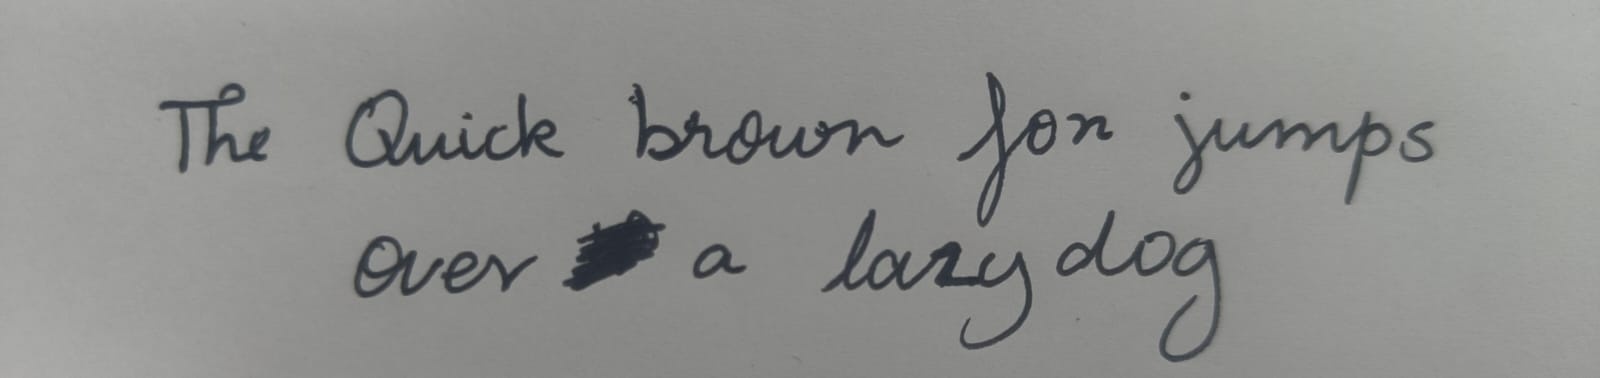 The Quick brown fox jumps
over a lazy dog